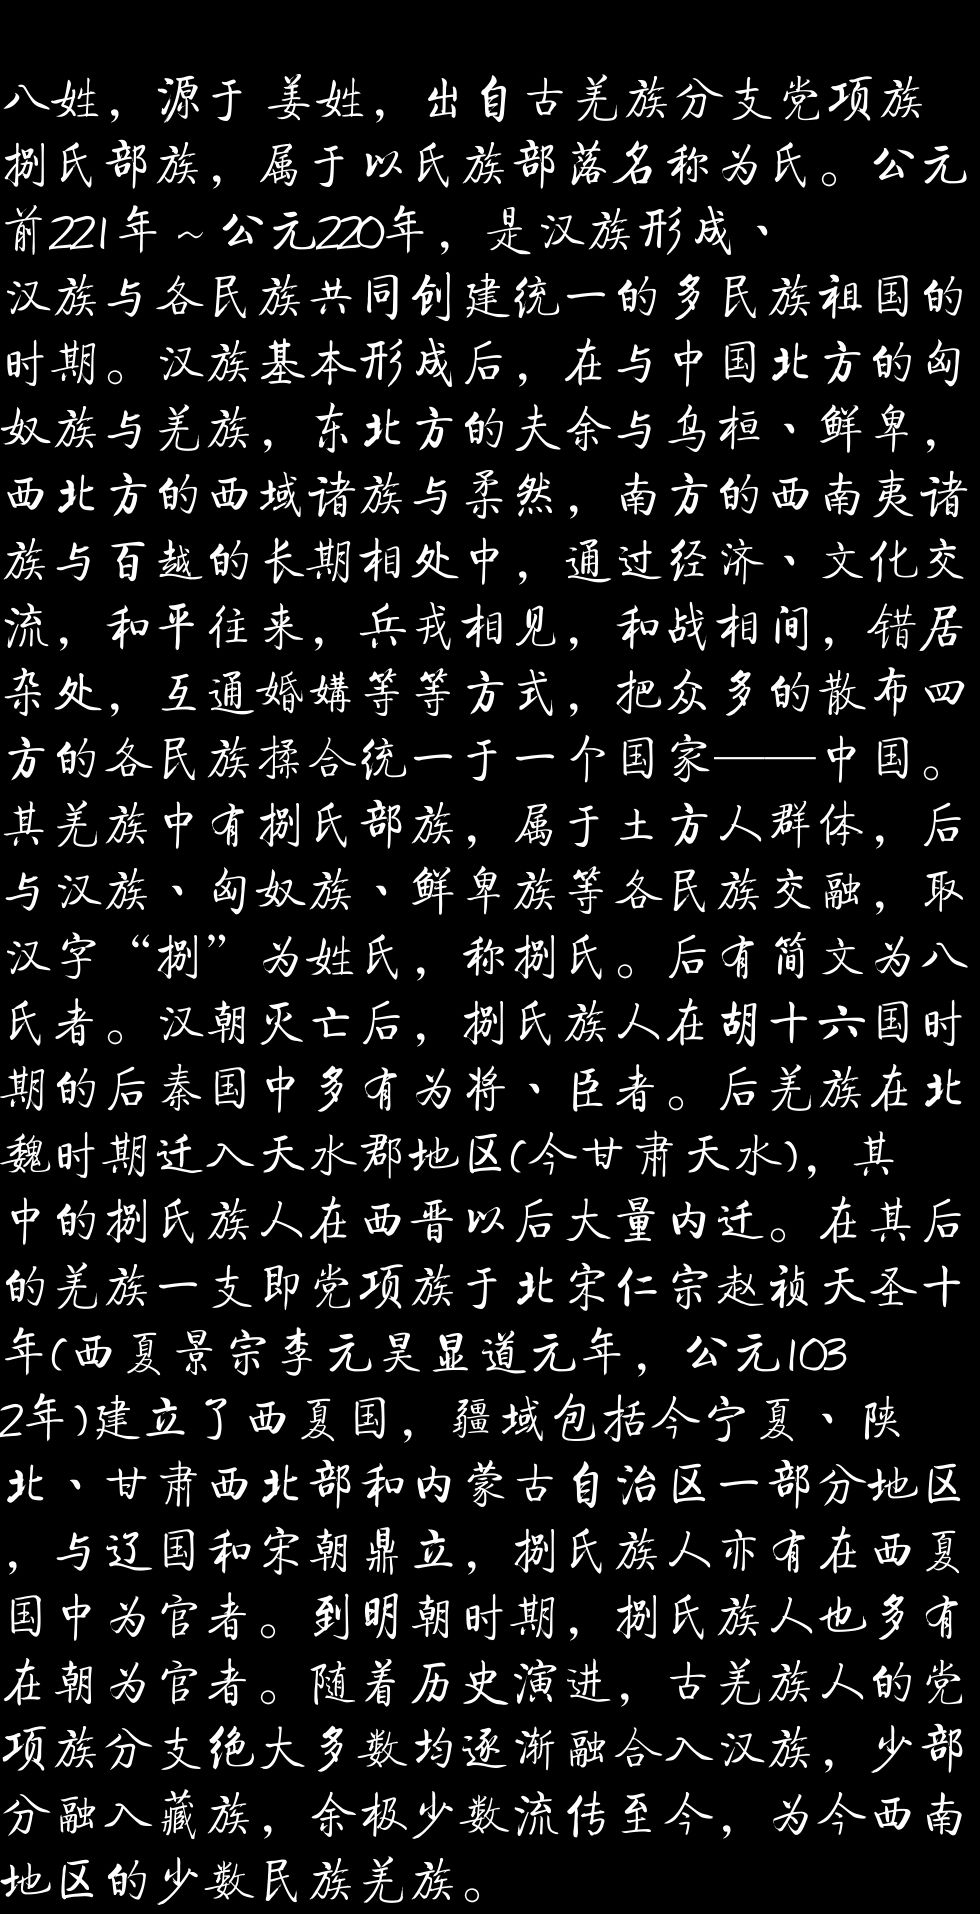 八姓，源于 姜姓，出自古羌族分支党项族
捌氏部族，属于以氏族部落名称为氏。公元
前221年～公元220年，是汉族形成、
汉族与各民族共同创建统一的多民族祖国的
时期。汉族基本形成后，在与中国北方的匈
奴族与羌族，东北方的夫余与乌桓、鲜卑，
西北方的西域诸族与柔然，南方的西南夷诸
族与百越的长期相处中，通过经济、文化交
流，和平往来，兵戎相见，和战相间，错居
杂处，互通婚媾等等方式，把众多的散布四
方的各民族揉合统一于一个国家——中国。
其羌族中有捌氏部族，属于土方人群体，后
与汉族、匈奴族、鲜卑族等各民族交融，取
汉字“捌”为姓氏，称捌氏。后有简文为八
氏者。汉朝灭亡后，捌氏族人在胡十六国时
期的后秦国中多有为将、臣者。后羌族在北
魏时期迁入天水郡地区(今甘肃天水)，其
中的捌氏族人在西晋以后大量内迁。在其后
的羌族一支即党项族于北宋仁宗赵祯天圣十
年(西夏景宗李元昊显道元年，公元103
2年)建立了西夏国，疆域包括今宁夏、陕
北、甘肃西北部和内蒙古自治区一部分地区
，与辽国和宋朝鼎立，捌氏族人亦有在西夏
国中为官者。到明朝时期，捌氏族人也多有
在朝为官者。随着历史演进，古羌族人的党
项族分支绝大多数均逐渐融合入汉族，少部
分融入藏族，余极少数流传至今，为今西南
地区的少数民族羌族。